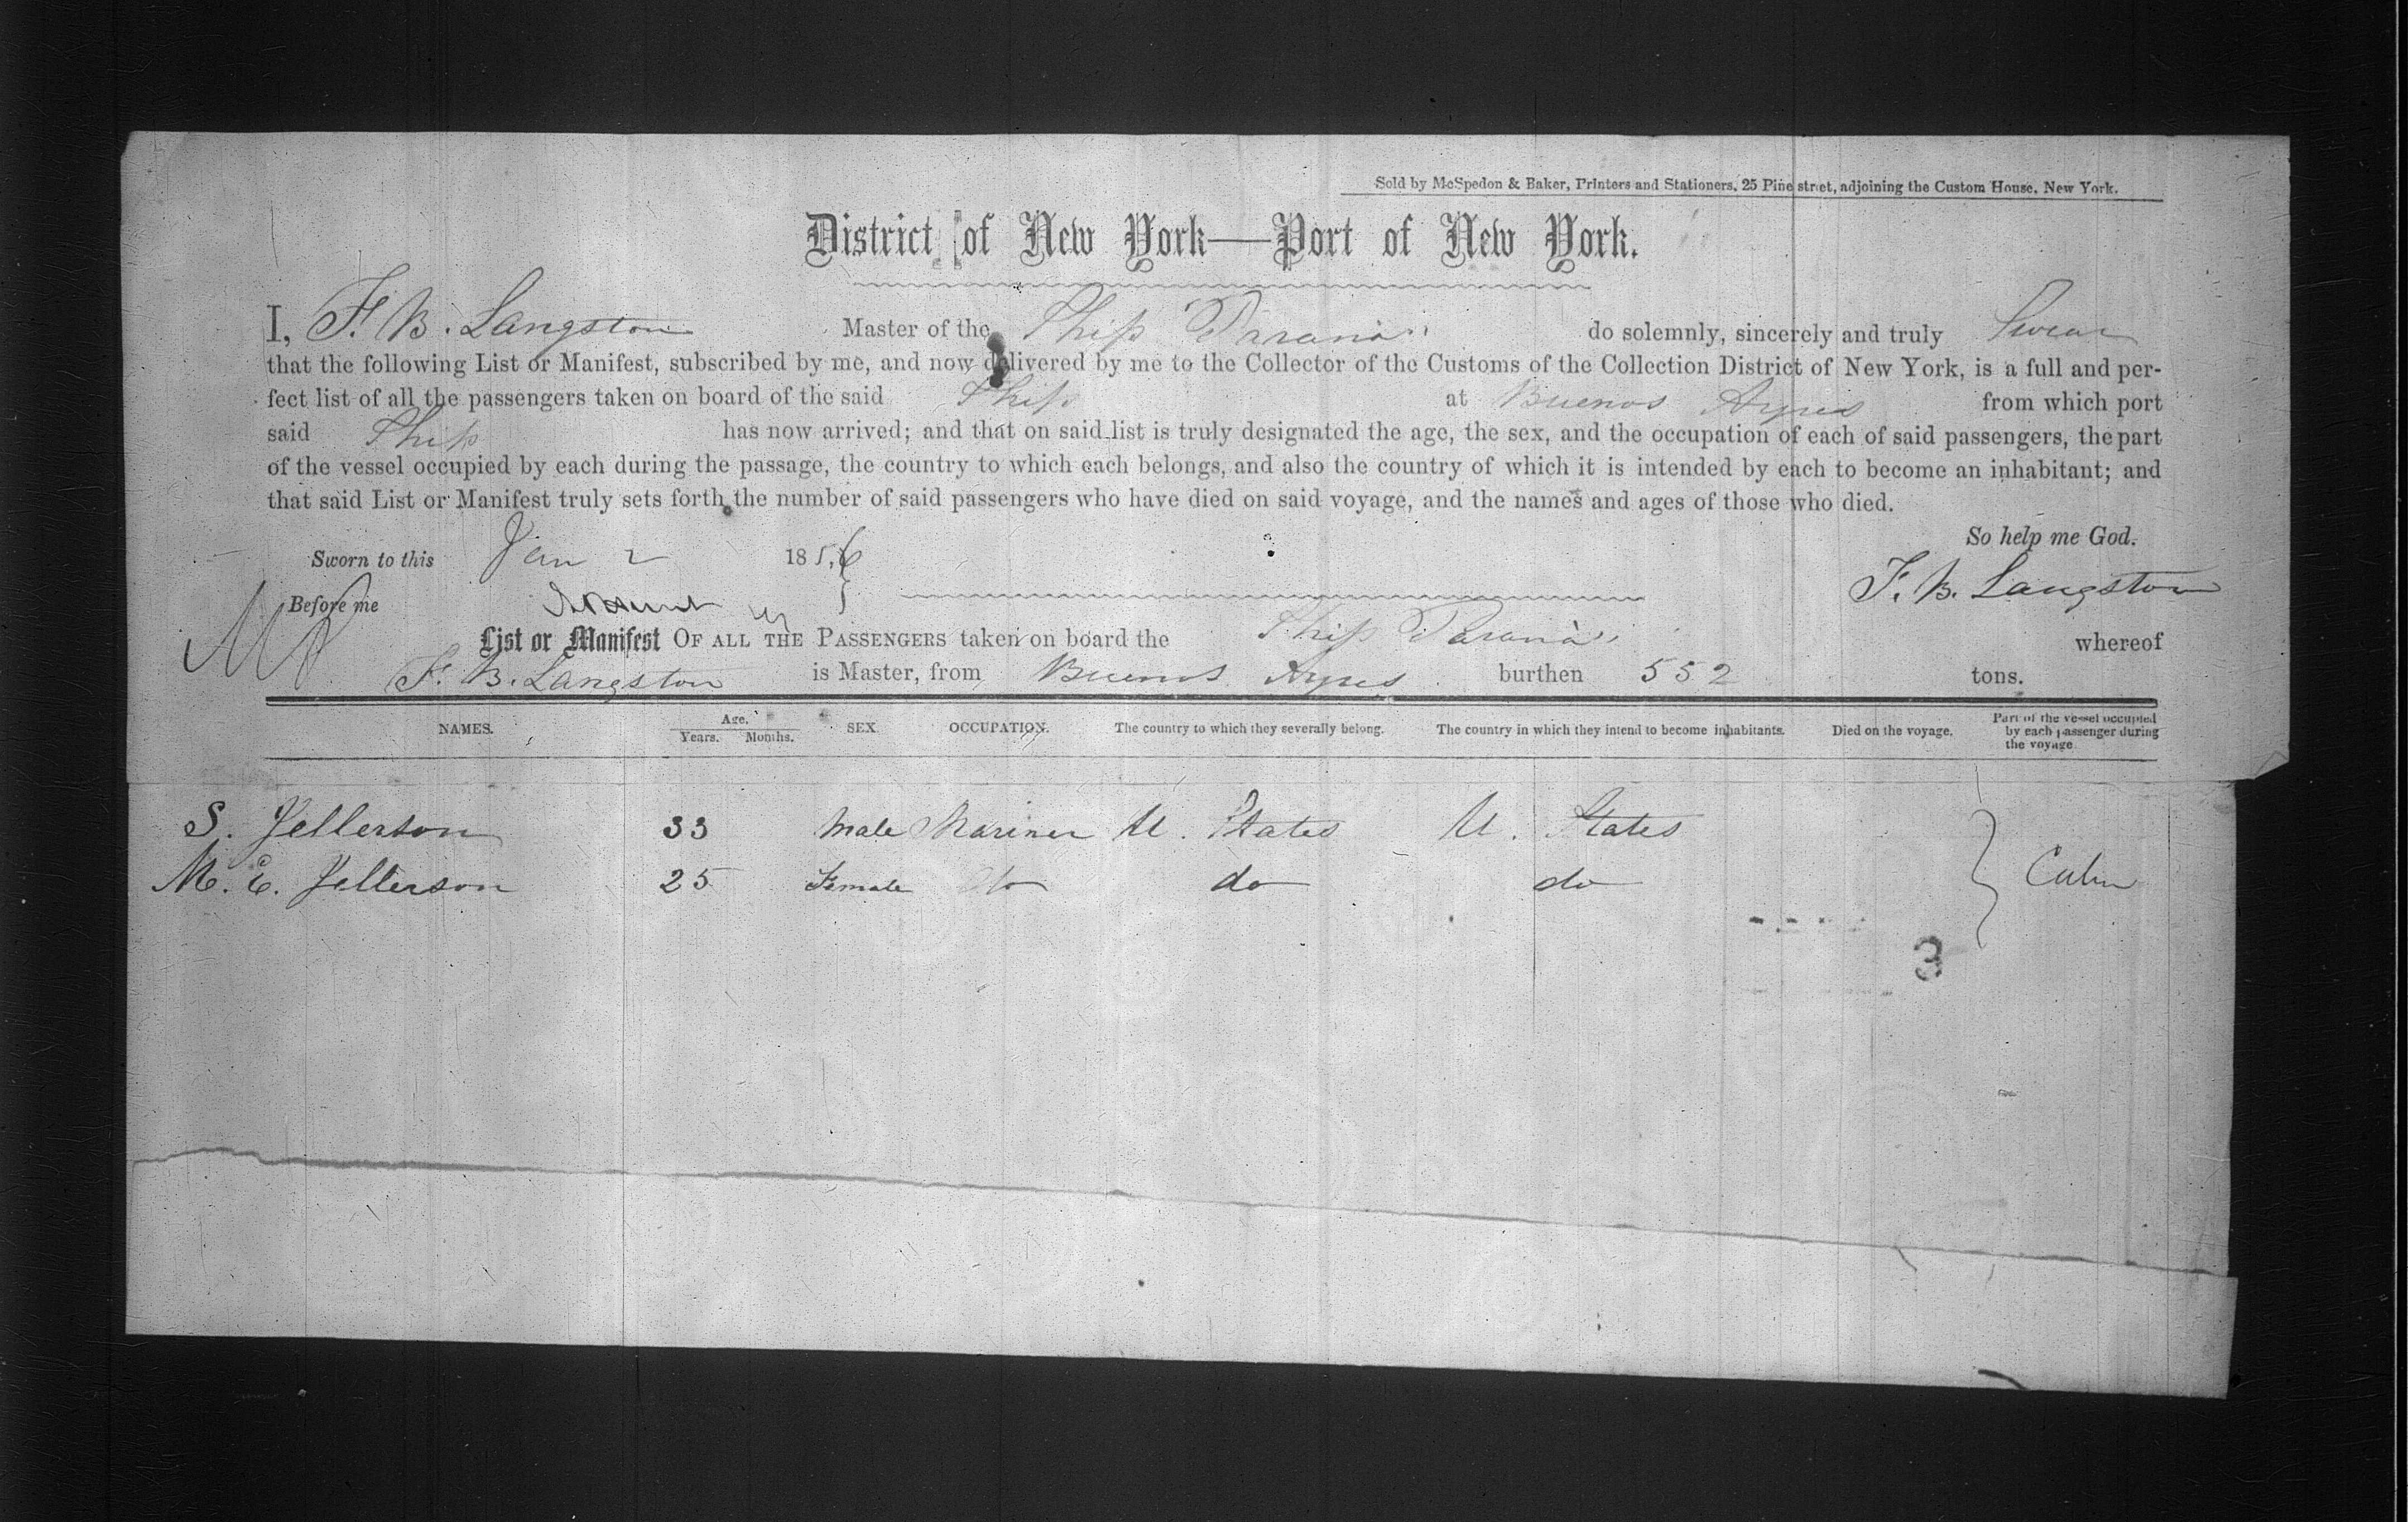 Sold by McSpedon & Baker, Printers and Stationers, 25 Pine street, adjoining the Custom House, New York.
District of New York—Port of New York.
I, F. B. Langston Master of the Ship "Parana" do solemnly, sincerely and truly Swear
that the following List or Manifest, subscribed by me, and now delivered by me to the Collector of the Customs of the Collection District of New York, is a full and per-
fect list of all the passengers taken on board of the said Ship at Buenos Ayres from which port
said Ship has now arrived; and that on said list is truly designated the age, the sex, and the occupation of each of said passengers, the part
of the vessel occupied by each during the passage, the country to which each belongs, and also the country of which it is intended by each to become an inhabitant; and
that said List or Manifest truly sets forth the number of said passengers who have died on said voyage, and the names and ages of those who died.
So help me God.
Sworn to this Jan 2 1856
F. B. Langston
Before me
List or Manifest OF ALL THE PASSENGERS taken on board the Ship Parana whereof
F. B. Langston is Master, from Buenos Ayres burthen 552 tons.
NAMES. Age. Years. Months. SEX. OCCUPATION. The country to which they severally belong. The country in which they intend to become inhabitants. Died on the voyage. Part of the vessel occupied by each passenger during the voyage
S. Jellerson 33 Male Mariner U. States U. States
M. E. Jellerson 25 Female do do do Cabin
3